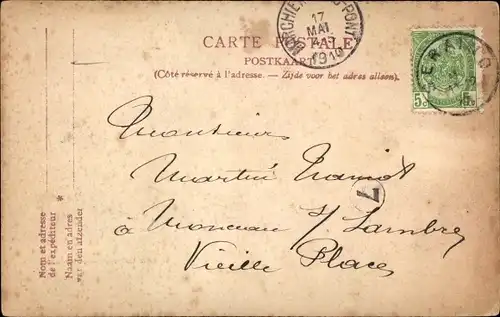 MAI
1910
CARTE POSTALE
POSTKAART
(Côté réservé à l'adresse. — Zijde voor het adres alleen).
5c 5c
Monsieur
7
à Monceau s/ Sambre
Vieille Place
Nom et adresse
de l'expéditeur
*
Naam en adres
van den afzender